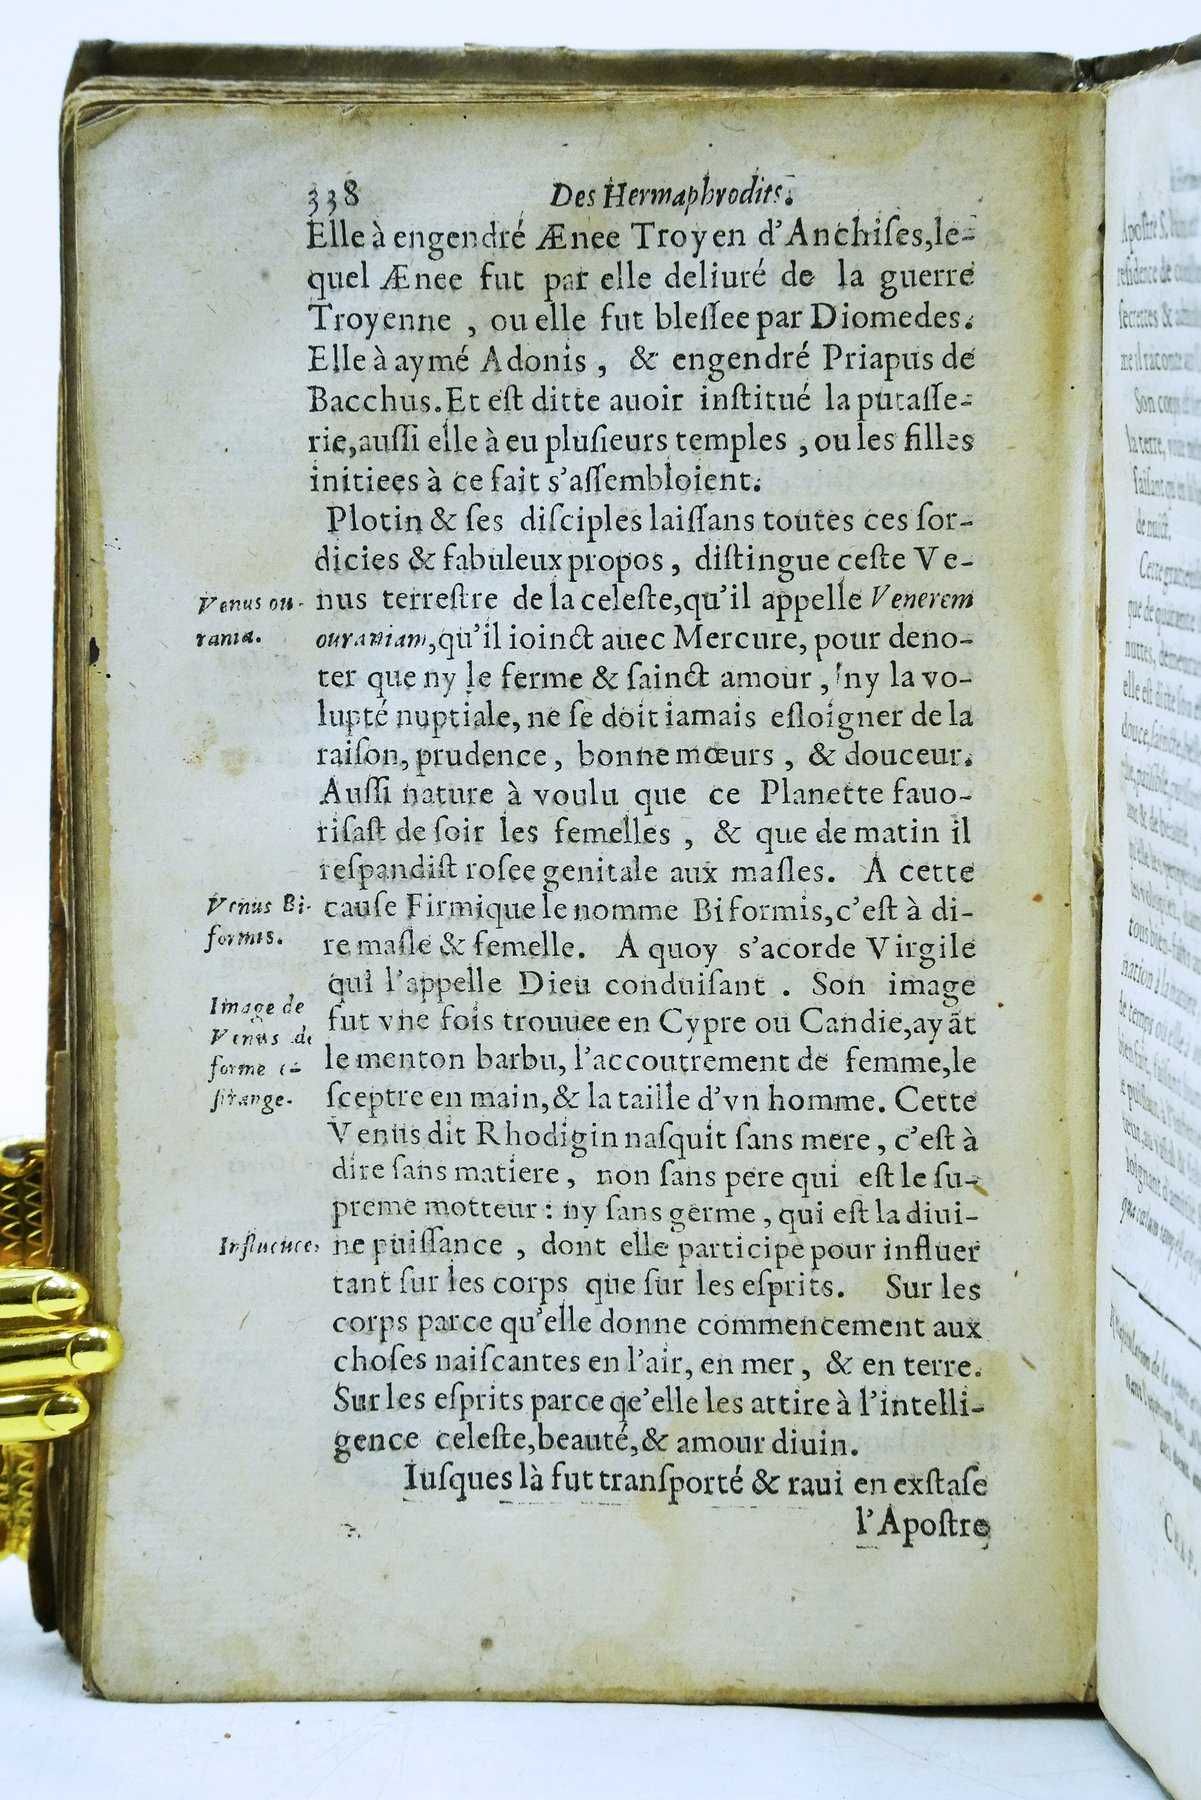 338 Des Hermaphrodits.
Elle à engendré Ænee Troyen d'Anchiſes,le-
quel Ænee fut par elle deliuré de la guerre
Troyenne , ou elle fut bleſſee par Diomedes.
Elle à aymé Adonis , & engendré Priapus de
Bacchus.Et eſt ditte auoir inſtitué la putaſſe-
rie,auſſi elle à eu pluſieurs temples ,ou les filles
initiees à ce fait s'aſſembloient.
Plotin & ſes diſciples laiſſans toutes ces ſor-
dicies & fabuleux propos , diſtingue ceſte Ve-
nus terreſtre de la celeſte,qu'il appelle Venerem
ouraniam,qu'il ioinct auec Mercure, pour deno-
ter que ny le ferme & ſainct amour , ny la vo-
lupté nuptiale, ne ſe doit iamais eſloigner de la
raiſon, prudence , bonne mœurs , & douceur.
Auſſi nature à voulu que ce Planette fauo-
riſaſt de ſoir les femelles , & que de matin il
reſpandiſt roſee genitale aux maſles. A cette
cauſe Firmique le nomme Biformis,c'eſt à di-
re maſle & femelle. A quoy s'acorde Virgile
qui l'appelle Dieu conduiſant . Son image
fut vne fois trouuee en Cypre ou Candie,ayãt
le menton barbu, l'accoutrement de femme,le
ſceptre en main,& la taille d'vn homme. Cette
Venus dit Rhodigin naſquit ſans mere , c'eſt à
dire ſans matiere , non ſans pere qui eſt le ſu-
preme motteur : ny ſans germe , qui eſt la diui-
ne puiſſance , dont elle participe pour influer
tant ſur les corps que ſur les eſprits. Sur les
corps parce qu'elle donne commencement aux
choſes naiſcantes en l'air, en mer , & en terre.
Sur les eſprits parce qe'elle les attire à l'intelli-
gence celeſte,beauté,& amour diuin.
Iuſques là fut tranſporté & raui en exſtaſe
l'Apoſtre
Venus ou-
rania.
Venus Bi-
formis.
Image de
Venus de
forme e-
ſtrange.
Influence.
Apoſtre S.
reſidence de
ſecrettes &
me il raconte
Son corps
la terre,
faiſant
de nuict.
que de quarante
nuttes,
elle eſt ditte
douce,
& de beauté
tous bien-
nation à la
de temps ou elle
bien fait,
d'amitié
de la
CHAP.